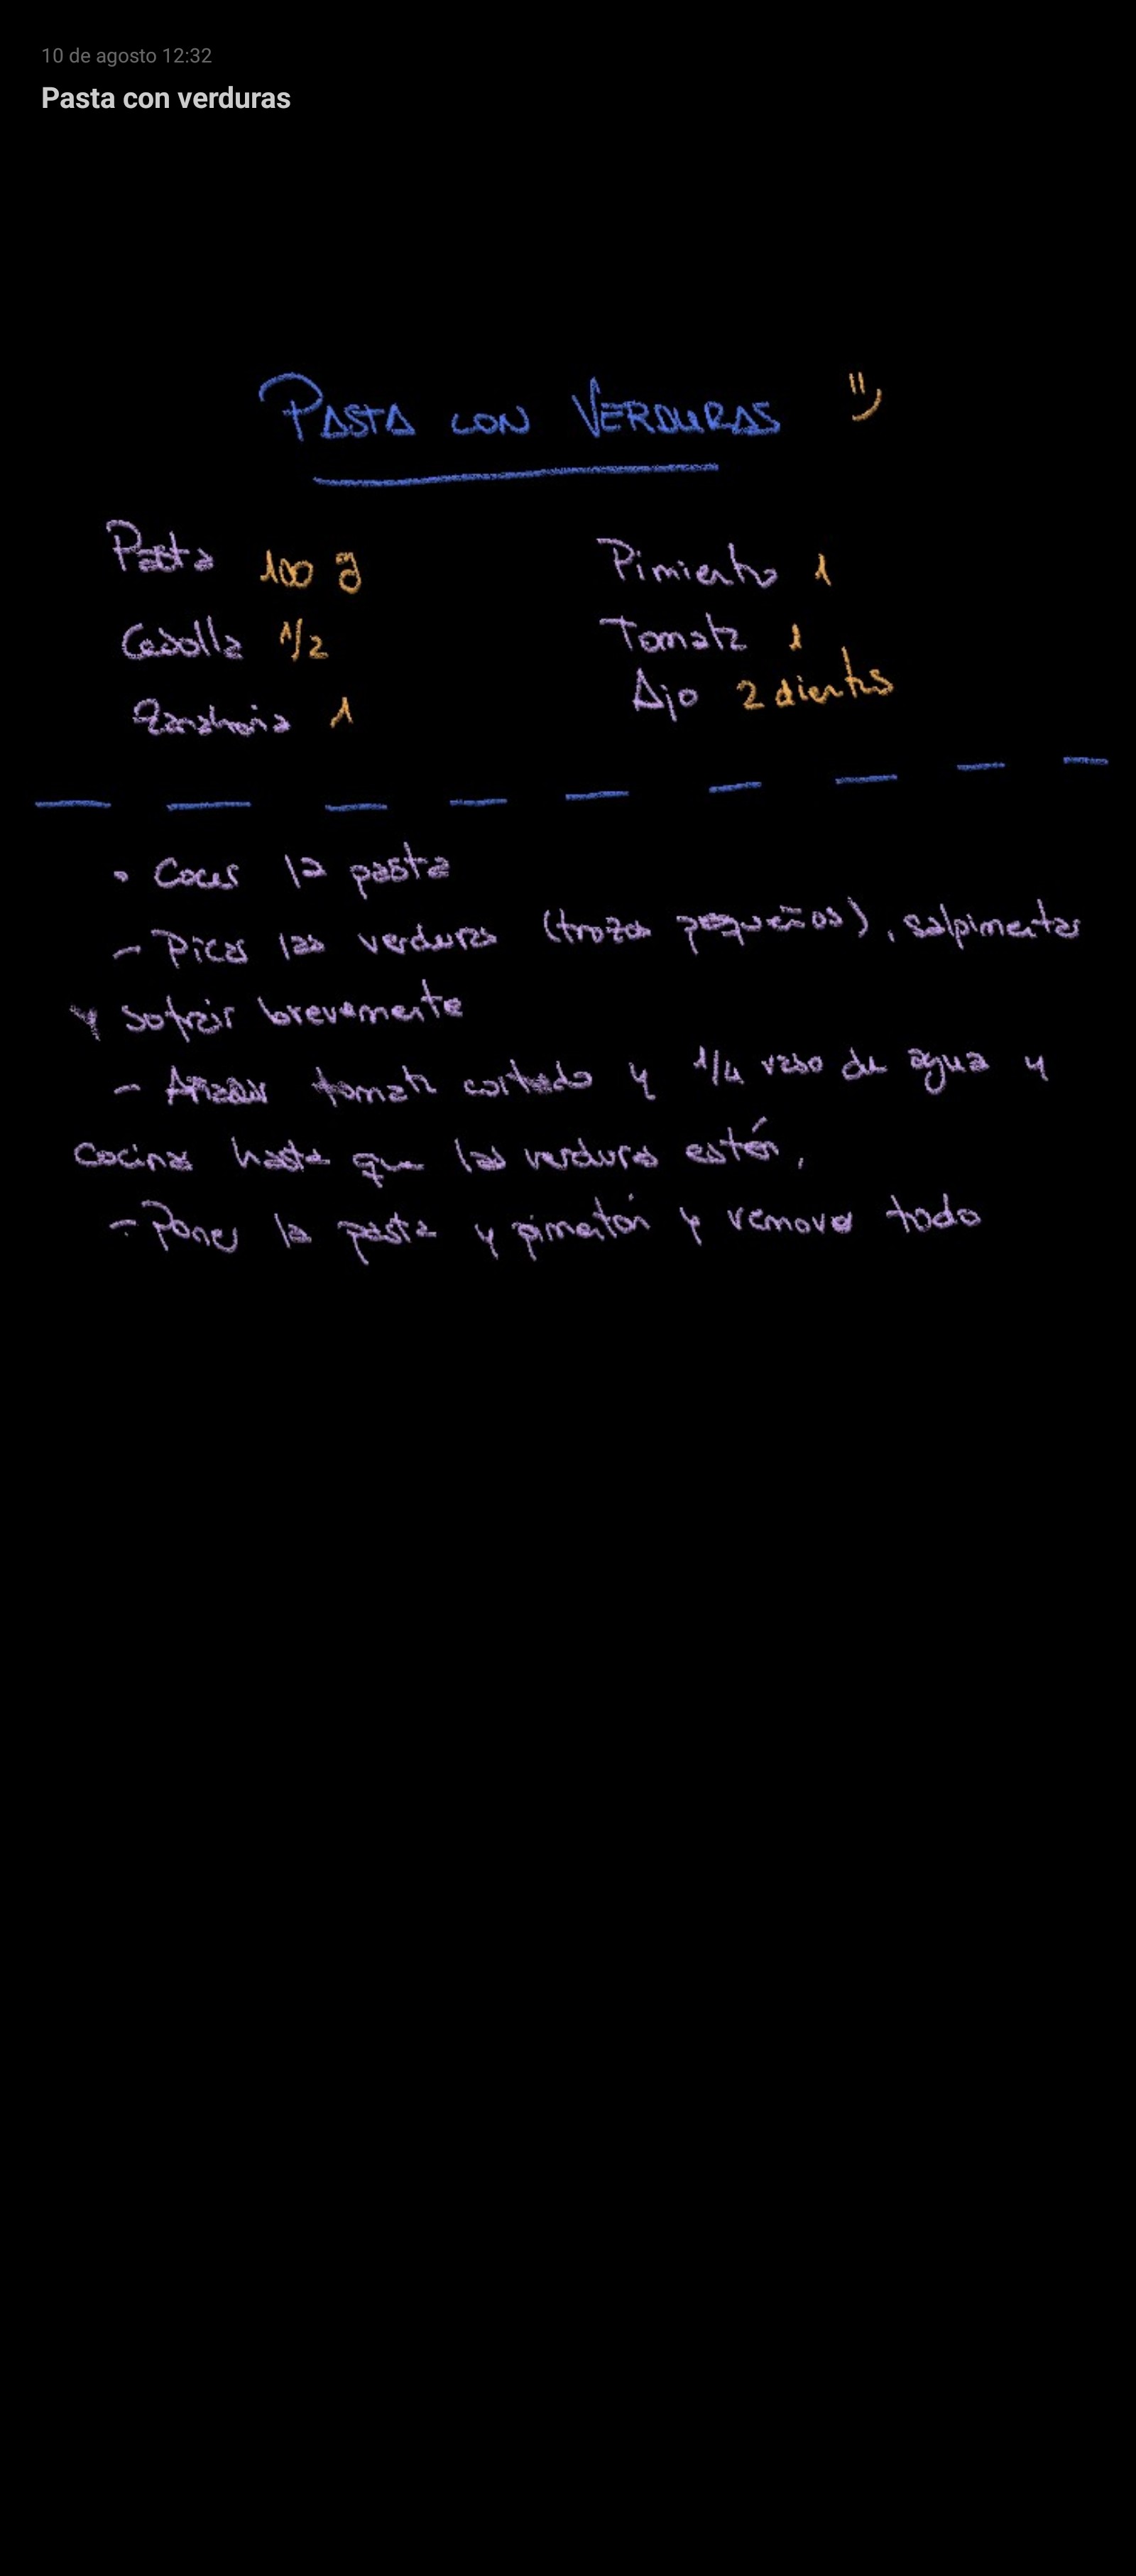 10 de agosto 12:32
Pasta con verduras
PASTA CON VERDURAS
Pasta 100 g
Pimiento 1
Cebolla 1/2
Tomate 1
Zanahoria 1
Ajo 2 dientes
• Cocer la pasta
- Picar las verduras (trozos pequeños), salpimentar
y sofreir brevemente
- Añadir tomate cortado y 1/4 vaso de agua y
cocinar hasta que las verduras estén.
- Poner la pasta y pimentón y remover todo